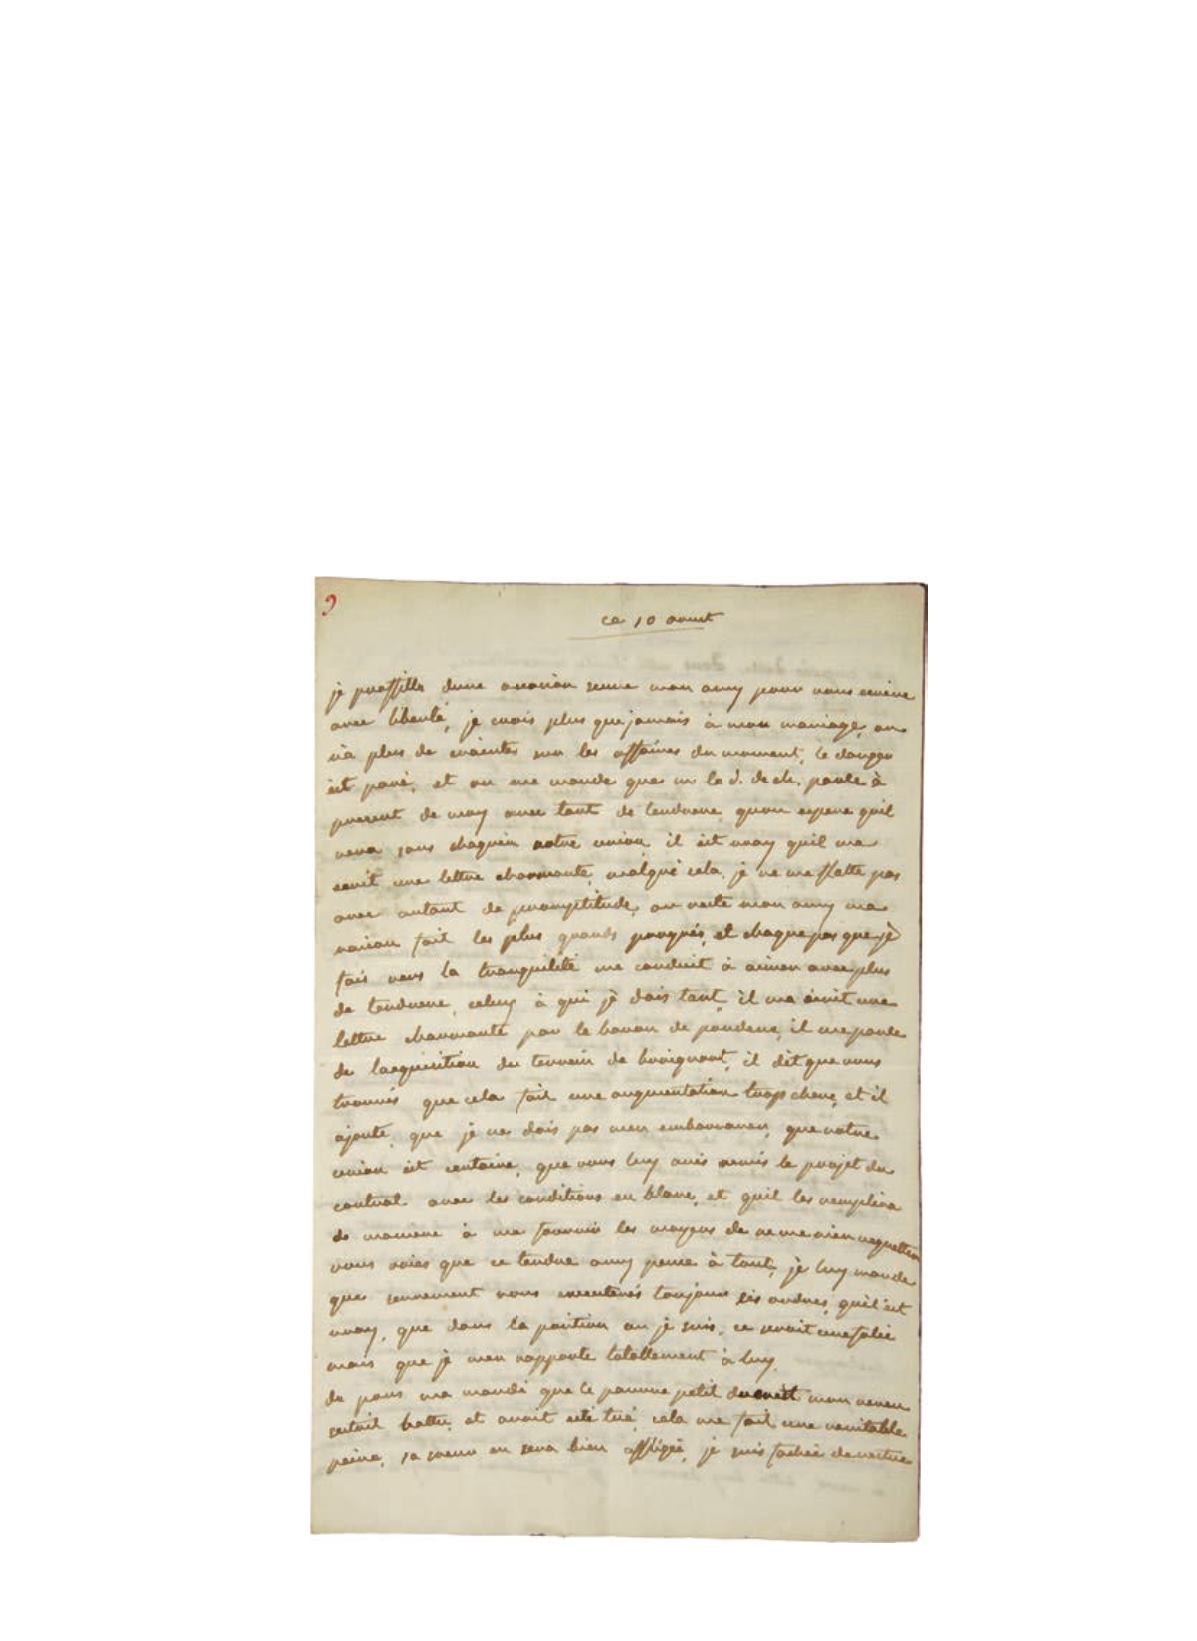 9
ce 10 aoust
je proffitte dune occasion seure mon amy pour vous ecrire
avec liberté, je crois plus que jamais à mon mariage, on
n'a plus de craintes sur les affaires du moment, le danger
est passé, et on me mande que m. le d. de ch. parle à
present de moy avec tant de tendresse, quon espere quil
verra sans chagrin notre union, il est vray quil ma
ecrit une lettre charmante, malgré cela, je ne me flatte pas
avec autant de promptitude, au reste mon amy ma
raison fait les plus grands progrés, et chaque pas que je
fais vers la tranquilité me conduit à aimer avec plus
de tendresse, celuy à qui je dois tant, il ma écrit une
lettre charmante par le baron de, il me parle
de lacquisition du terrein de, il dit que vous
trouvés que cela fait une augmentation trop chere, et il
ajoute, que je ne dois pas men embarrasser, que notre
union est certaine, que vous luy avés remis le projet du
contrat avec les conditions en blanc, et quil les remplira
de maniere à me fournir les moyens de ne me rien regretter
vous voiés que ce tendre amy pense à tout, je luy mande
que surement vous executerés toujours ses ordres, qu'il est
vray, que dans la position ou je suis, ce seroit une folie
mais que je men rapporte totallement à luy.
de paris ma mandé que le pauvre petit mon neveu
sestoit battu, et avoit esté tué, cela me fait une veritable
peine, sa soeur en sera bien affligée, je suis fachée de